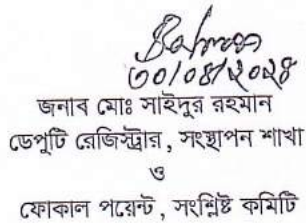 ৩০/০৪/২০২৪
জনাব মোঃ সাইদুর রহমান
ডেপুটি রেজিস্ট্রার, সংস্থাপন শাখা
ও
ফোকাল পয়েন্ট, সংশ্লিষ্ট কমিটি